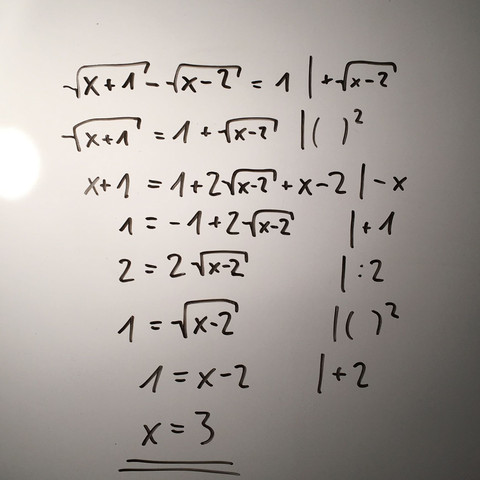 √(x+1) - √(x-2) = 1 | +√(x-2)
√(x+1) = 1 + √(x-2) | ( )²
x+1 = 1+2√(x-2) + x-2 | -x
1 = -1+2√(x-2) | +1
2 = 2√(x-2) | :2
1 = √(x-2) | ( )²
1 = x-2 | +2
x = 3